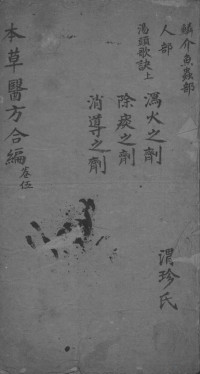 鱗介魚蟲部
人部
湯頭歌訣上
瀉火之劑
除痰之劑
消導之劑
本草醫方合編 卷伍
渭珍氏